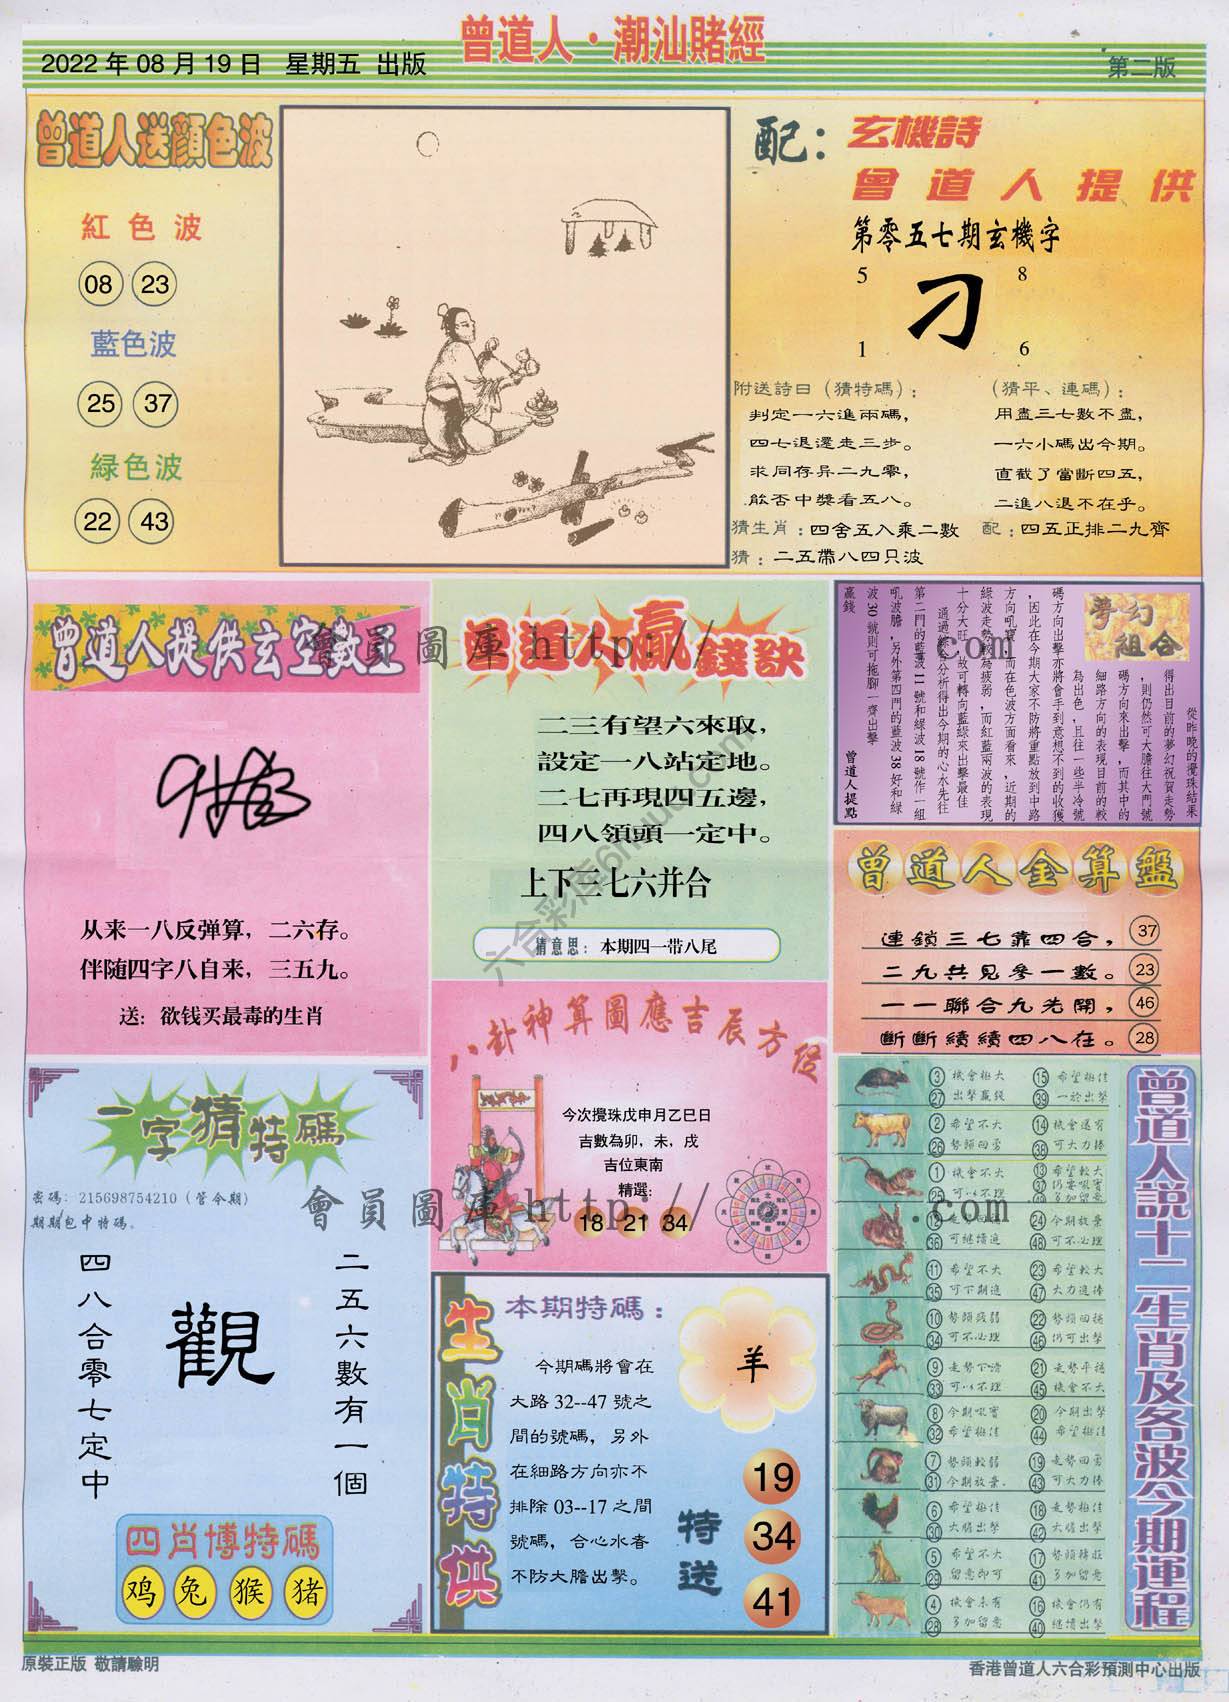 曾道人·潮汕賭經
2022 年 08 月 19 日 星期五 出版
第二版
曾道人送顏色波
紅色波
08 23
藍色波
25 37
綠色波
22 43
配：玄機詩
曾道人提供
第零五七期玄機字
5 8
刁
1 6
附送詩曰（猜特碼）：
判定一六進兩碼，
四七退還走三步。
求同存异二九零，
能否中獎看五八。
（猜平、連碼）：
用盡三七數不盡，
一六小碼出今期。
直截了當斷四五，
二進八退不在乎。
猜生肖：四舍五入乘二數
配：四五正排二九齊
猜：二五帶八四只波
曾道人提供玄空數王
从来一八反弹算，二六存。
伴随四字八自来，三五九。
送：欲钱买最毒的生肖
曾道人贏錢訣
二三有望六來取，
設定一八站定地。
二七再現四五邊，
四八領頭一定中。
上下三七六并合
猜意思：本期四一带八尾
夢幻組合
從昨晚的攪珠結果
得出目前的夢幻祝賀走勢
，則仍然可大膽往大門號
碼方向來出擊，而其中的
細路方向的表現目前的較
為出色，且往一些半冷號
碼方向出擊亦將會手到意想不到的收獲
，因此在今期大家不防將重點放到中路
方向吼寶，而在色波方面看來，近期的
綠波走勢較為疲弱，而紅藍兩波的表現
十分大旺，故可轉向藍綠來出擊最佳
通過綜合分析得出今期的心水先往
第二門的藍波 11 號和綠波 18 號作一組
吼波膽，另外第四門的藍波 38 好和綠
波 30 號則可拖腳一齊出擊
贏錢
曾道人提點
曾道人金算盤
連鎖三七靠四合， 37
二九共見參一數。 23
一一聯合九先開， 46
斷斷續續四八在。 28
八卦神算圖應吉辰方位
今次攪珠戊申月乙巳日
吉數為卯，未，戌
吉位東南
精選:
18 21 34
會員圖庫 http://
com
六合彩库6htuu.com
會員圖庫 http://
.com
一字猜特碼
密碼：215698754210（管今期）
期期包中特碼。
二五六數有一個
觀
四八合零七定中
四肖博特碼
鸡 兔 猴 猪
生肖特供
本期特碼：
今期碼將會在
大路 32--47 號之
間的號碼，另外
在細路方向亦不
排除 03--17 之間
號碼，合心水者
不防大膽出擊。
羊
特送
19
34
41
曾道人說十二生肖及各波今期運程
3 機會極大 15 希望極佳
27 出擊贏錢 39 一於出擊
2 希望不大 14 機會還有
26 勢頭回勇 38 可大力捧
1 機會不大 13 希望較大
25 可以不理 37 仍要吼實
多加留意
24 今期放棄
36 可繼續進 48 可不必理
11 希望不大 23 希望較大
35 可下期進 47 大力進捧
10 勢頭疲弱 22 勢頭回揚
34 可不必理 46 仍可出擊
9 走勢下滑 21 走勢平穩
33 可以不理 45 機會不大
8 今期吼寶 20 今期出擊
32 希望極佳 44 希望極佳
7 勢頭較弱 19 走勢回勇
31 今期放棄. 43 可大力捧
6 希望極佳 18 走勢極佳
30 大膽出擊 42 大膽出擊
5 希望不大 17 勢頭轉旺
29 留意即可 41 多加留意
4 機會未有 16 機會仍有
28 多加留意 40 繼續出擊
原裝正版 敬請驗明
香港曾道人六合彩預測中心出版